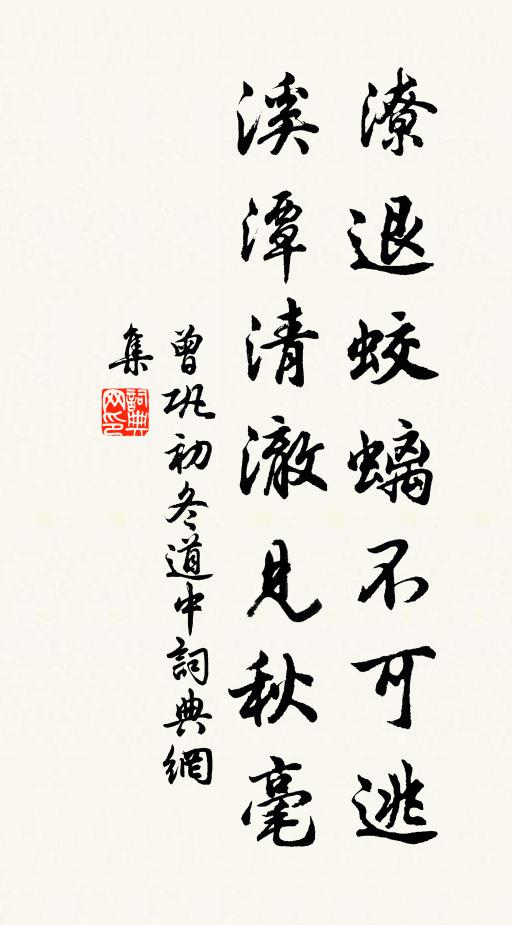 潦退蛟螭不可逃
溪潭清澈見秋毫
曾巩初冬道中詞典網
集
詞典
网印